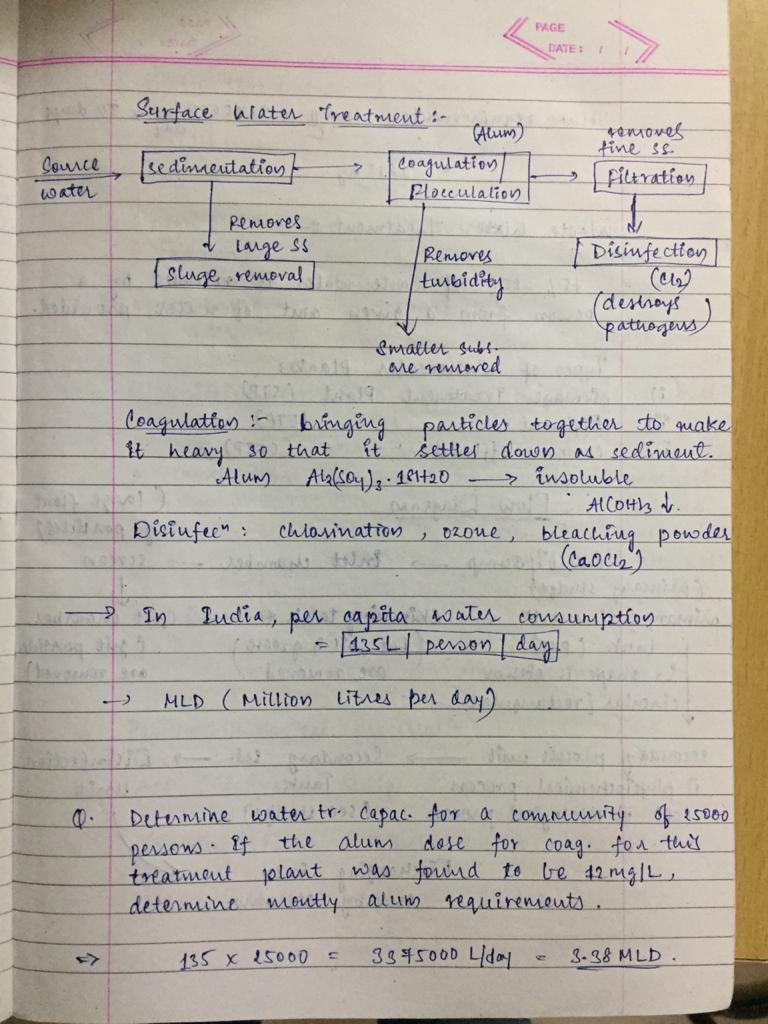 PAGE
DATE: / /
Surface Water Treatment :-
(Alum)
removes
fine ss.
Source
water
Sedimentation
Coagulation/
Flocculation
Filtration
Removes
large SS
Sluge removal
Removes
turbidity
Smaller subs.
are removed
Disinfection
(Cl2)
(destroys
pathogens)
Coagulation :- bringing particles together to make
it heavy so that it settles down as sediment.
Alum Al2(SO4)3 . 18H2O → insoluble
Al(OH)3 ↓.
Disinfecⁿ : chlorination , ozone, bleaching powder
(CaOCl2)
→ In India, per capita water consumption
= 135L / person / day
→ MLD ( Million litres per day)
Q. Determine water tr. capac. for a community of 25000
persons. If the alum dose for coag. for this
treatment plant was found to be 12mg/L,
determine montly alum requirements.
⇒ 135 x 25000 = 3375000 L/day = 3.38 MLD.